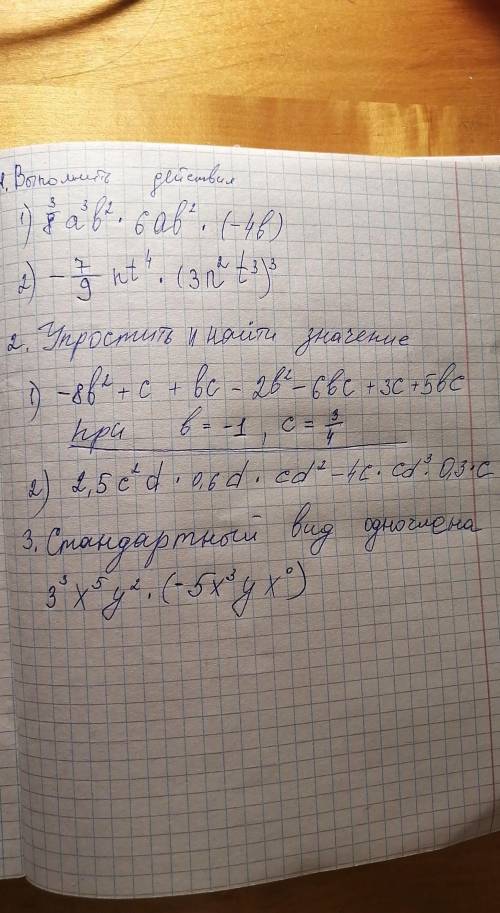 1. Выполнить действия
1) 3/8 a³b² · 6ab² · (-4b)
2) -7/9 nt⁴ · (3n²t³)³
2. Упростить и найти значение
1) -8b² + c + bc - 2b² - 6bc + 3c + 5bc
при b = -1, c = 3/4
2) 2,5c²d · 0,6d · cd² - 4c · cd³ · 0,3 · c
3. Стандартный вид одночлена
3³x⁵y² · (-5x³yx⁰)